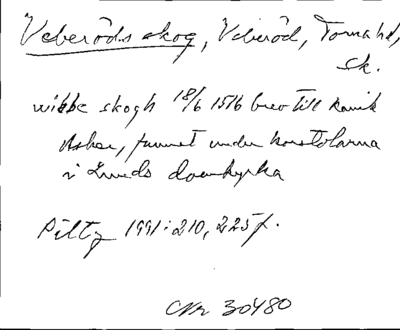 Veberöds skog, Veberöd, Torna hd,
Sk.
wibbe skogh 18/6 1516 brev till kanik
Asker, funnet under korstolarna
i Lunds domkyrka
Piltz 1991:210, 225f.
CNr 30480